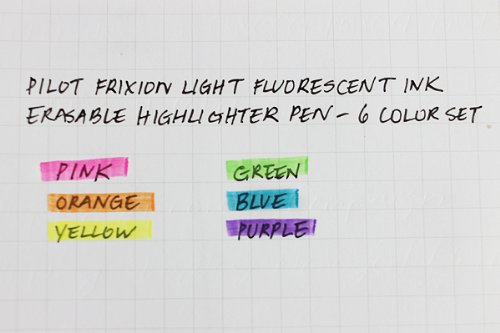 PILOT FRIXION LIGHT FLUORESCENT INK
ERASABLE HIGHLIGHTER PEN - 6 COLOR SET
PINK
ORANGE
YELLOW
GREEN
BLUE
PURPLE